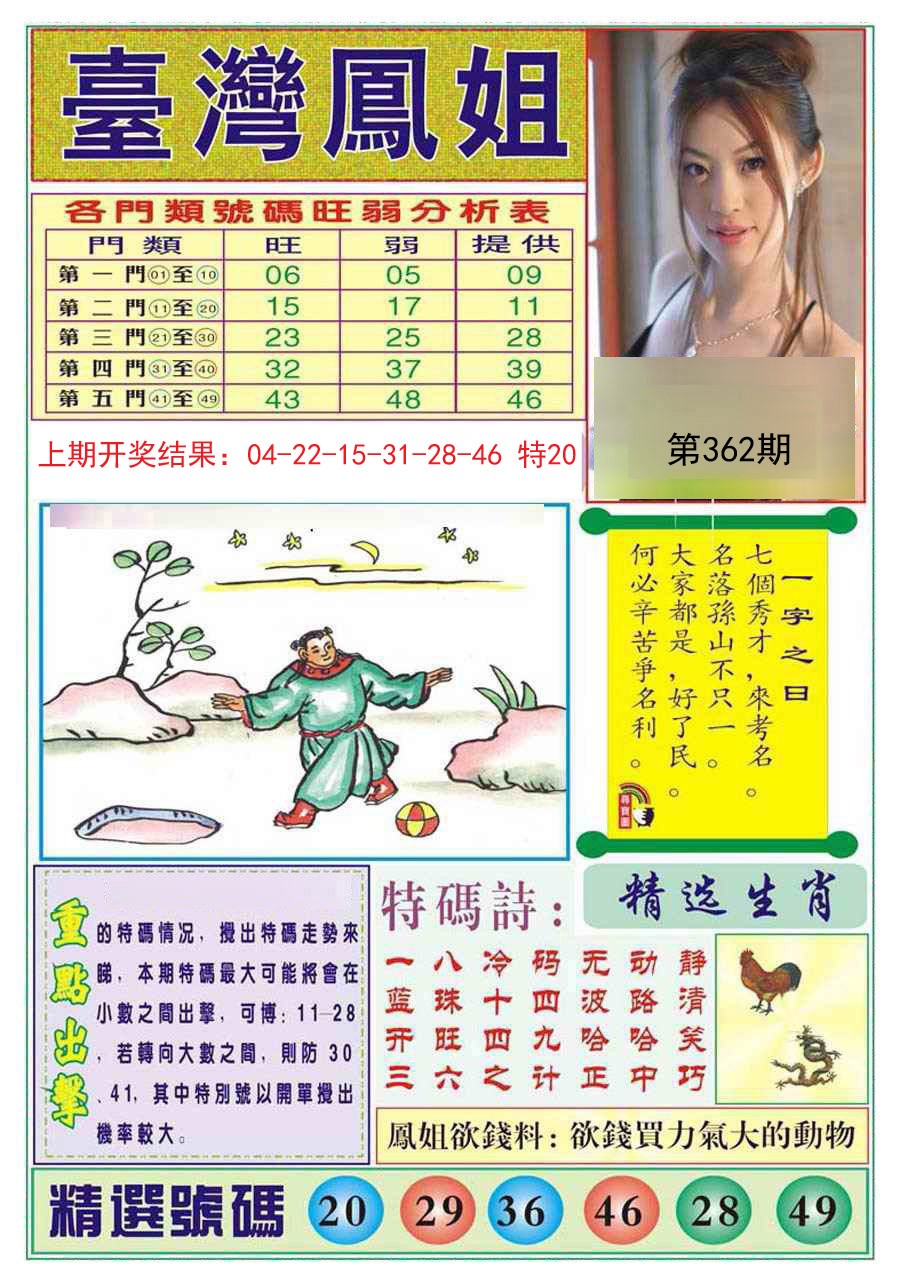 臺灣鳳姐
各門類號碼旺弱分析表
門類 旺 弱 提供
第一門01至10 06 05 09
第二門11至20 15 17 11
第三門21至30 23 25 28
第四門31至40 32 37 39
第五門41至49 43 48 46
上期开奖结果：04-22-15-31-28-46 特20
第362期
一字之曰
七個秀才，來考名。
名落孫山不只一。
大家都是，好了民。
何必辛苦爭名利。
尋寶圖
重點出擊
的特碼情况，攪出特碼走勢來
睇，本期特碼最大可能將會在
小數之間出擊，可博：11—28
，若轉向大數之間，則防 30
、41，其中特別號以開單攪出
機率較大。
特碼詩：
一八冷码无动静
蓝珠十四波路清
开旺四九哈哈笑
三六之计正中巧
精选生肖
鳳姐欲錢料：欲錢買力氣大的動物
精選號碼 20 29 36 46 28 49